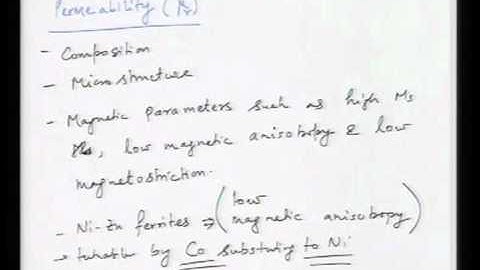 Permeability (μr)
- Composition
- Microstructure
- Magnetic parameters such as high Ms
, low magnetic anisotropy & low
magnetostriction.
- Ni-Zn ferrites → (low
magnetic anisotropy)
→ tunable by Co substituting to Ni